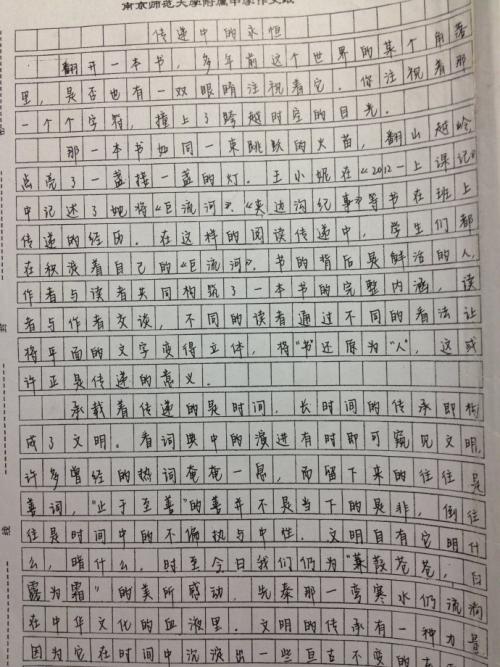 南京师范大学附属中学作文纸
传递中的永恒
翻开一本书，多年前这个世界的某个角落
里，是否也有一双眼睛注视着它。你注视着那
一个个字符，撞上了跨越时空的目光。
那一本书如同一束跳跃的火苗，翻山越岭
点亮了一盏接一盏的灯。王小妮在《2012—上课记》
中记述了她将《巨流河》、《夹边沟纪事》等书在班上
传递的经历。在这样的阅读传递中，学生们都
在积淀着自己的《巨流河》。书的背后是鲜活的人，
作者与读者共同构筑了一本书的完整内涵，读
者与作者交谈，不同的读者通过不同的看法让
将平面的文字变得立体，将"书"还原为"人"，这或
许正是传递的意义。
承载着传递的是时间，长时间的传承即构
成了文明。看词典中的演进有时即可窥见文明，
许多曾经的热词奄奄一息，而留下来的往往是
善词，"止于至善"的善并不是当下的是非，倒往
往是时间中的不偏执与中性。文明自有它明什
么，暗什么。时至今日我们仍为"蒹葭苍苍，白
露为霜"的美所感动，先秦那一弯寒水仍流淌
在中华文化的血液里。文明的传承有一种力量
因为它在时间中沉淀出一些亘古不变的